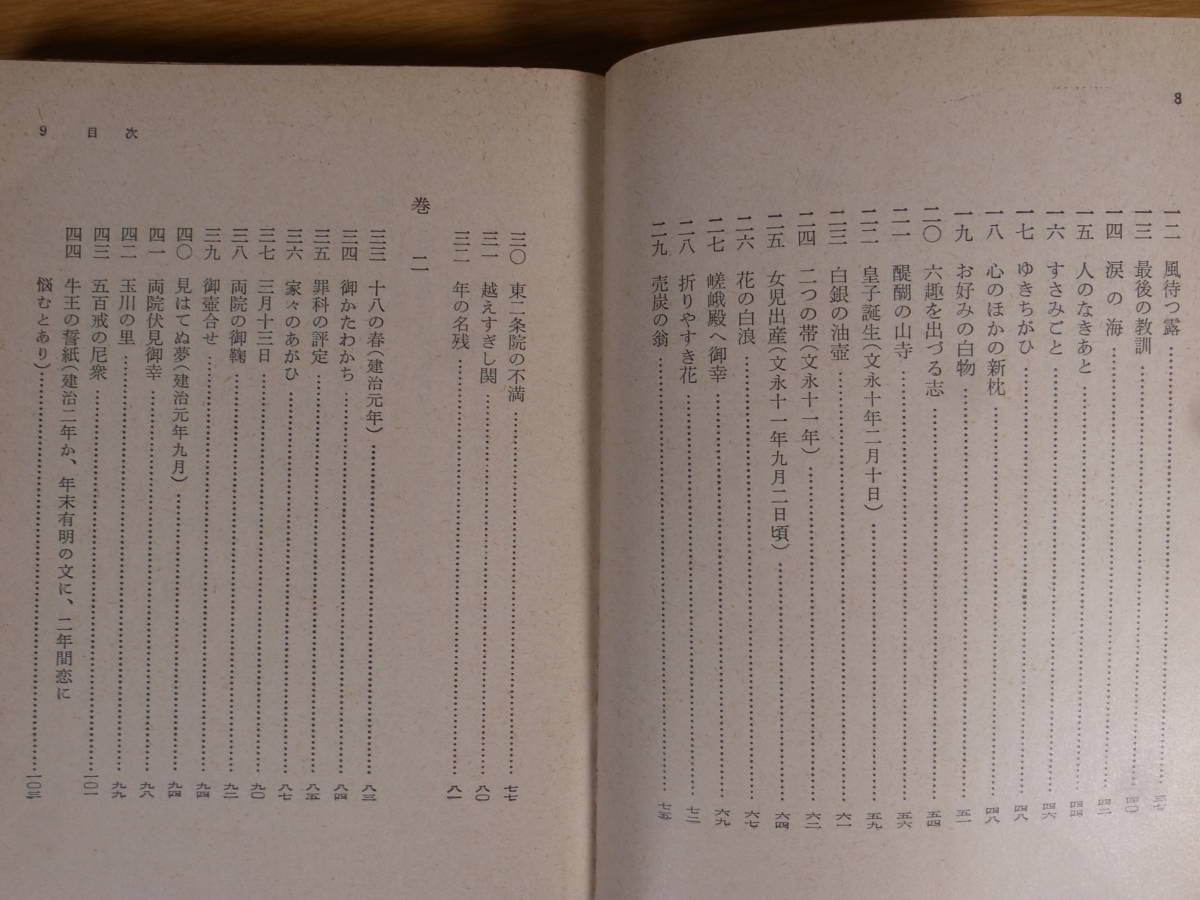 8
一二 風待つ露……………三七
一三 最後の教訓……………四〇
一四 涙の海……………四二
一五 人のなきあと……………四四
一六 すさみごと……………四六
一七 ゆきちがひ……………四八
一八 心のほかの新枕……………四八
一九 お好みの白物……………五一
二〇 六趣を出づる志……………五四
二一 醍醐の山寺……………五六
二二 皇子誕生(文永十年二月十日)……………五九
二三 白銀の油壺……………六一
二四 二つの帯(文永十一年)……………六二
二五 女児出産(文永十一年九月二日頃)……………六四
二六 花の白浪……………六七
二七 嵯峨殿へ御幸……………六九
二八 折りやすき花……………七二
二九 売炭の翁……………七五
9 目次
三〇 東二条院の不満……………七七
三一 越えすぎし関……………八〇
三二 年の名残……………八一
巻二
三三 十八の春(建治元年)……………八三
三四 御かたわかち……………八四
三五 罪科の評定……………八五
三六 家々のあがひ……………八七
三七 三月十三日……………九〇
三八 両院の御鞠……………九二
三九 御壺合せ……………九四
四〇 見はてぬ夢(建治元年九月)……………九四
四一 両院伏見御幸……………九八
四二 玉川の里……………九九
四三 五百戒の尼衆……………一〇一
四四 牛王の誓紙(建治二年か、年末有明の文に、二年間恋に
悩むとあり)……………一〇三